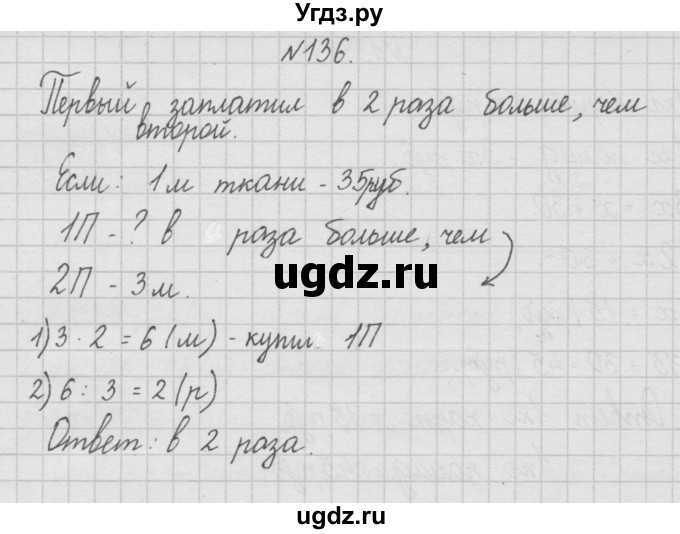 Угдз.ру
№136.
Первый заплатил в 2 раза больше, чем
второй.
Если: 1м ткани - 35руб.
1П - ? в раза больше, чем
2П - 3 м.
ugdz.ru
1) 3 · 2 = 6 (м) - купил 1П
2) 6 : 3 = 2 (р)
Ответ: в 2 раза.
ugdz.ru